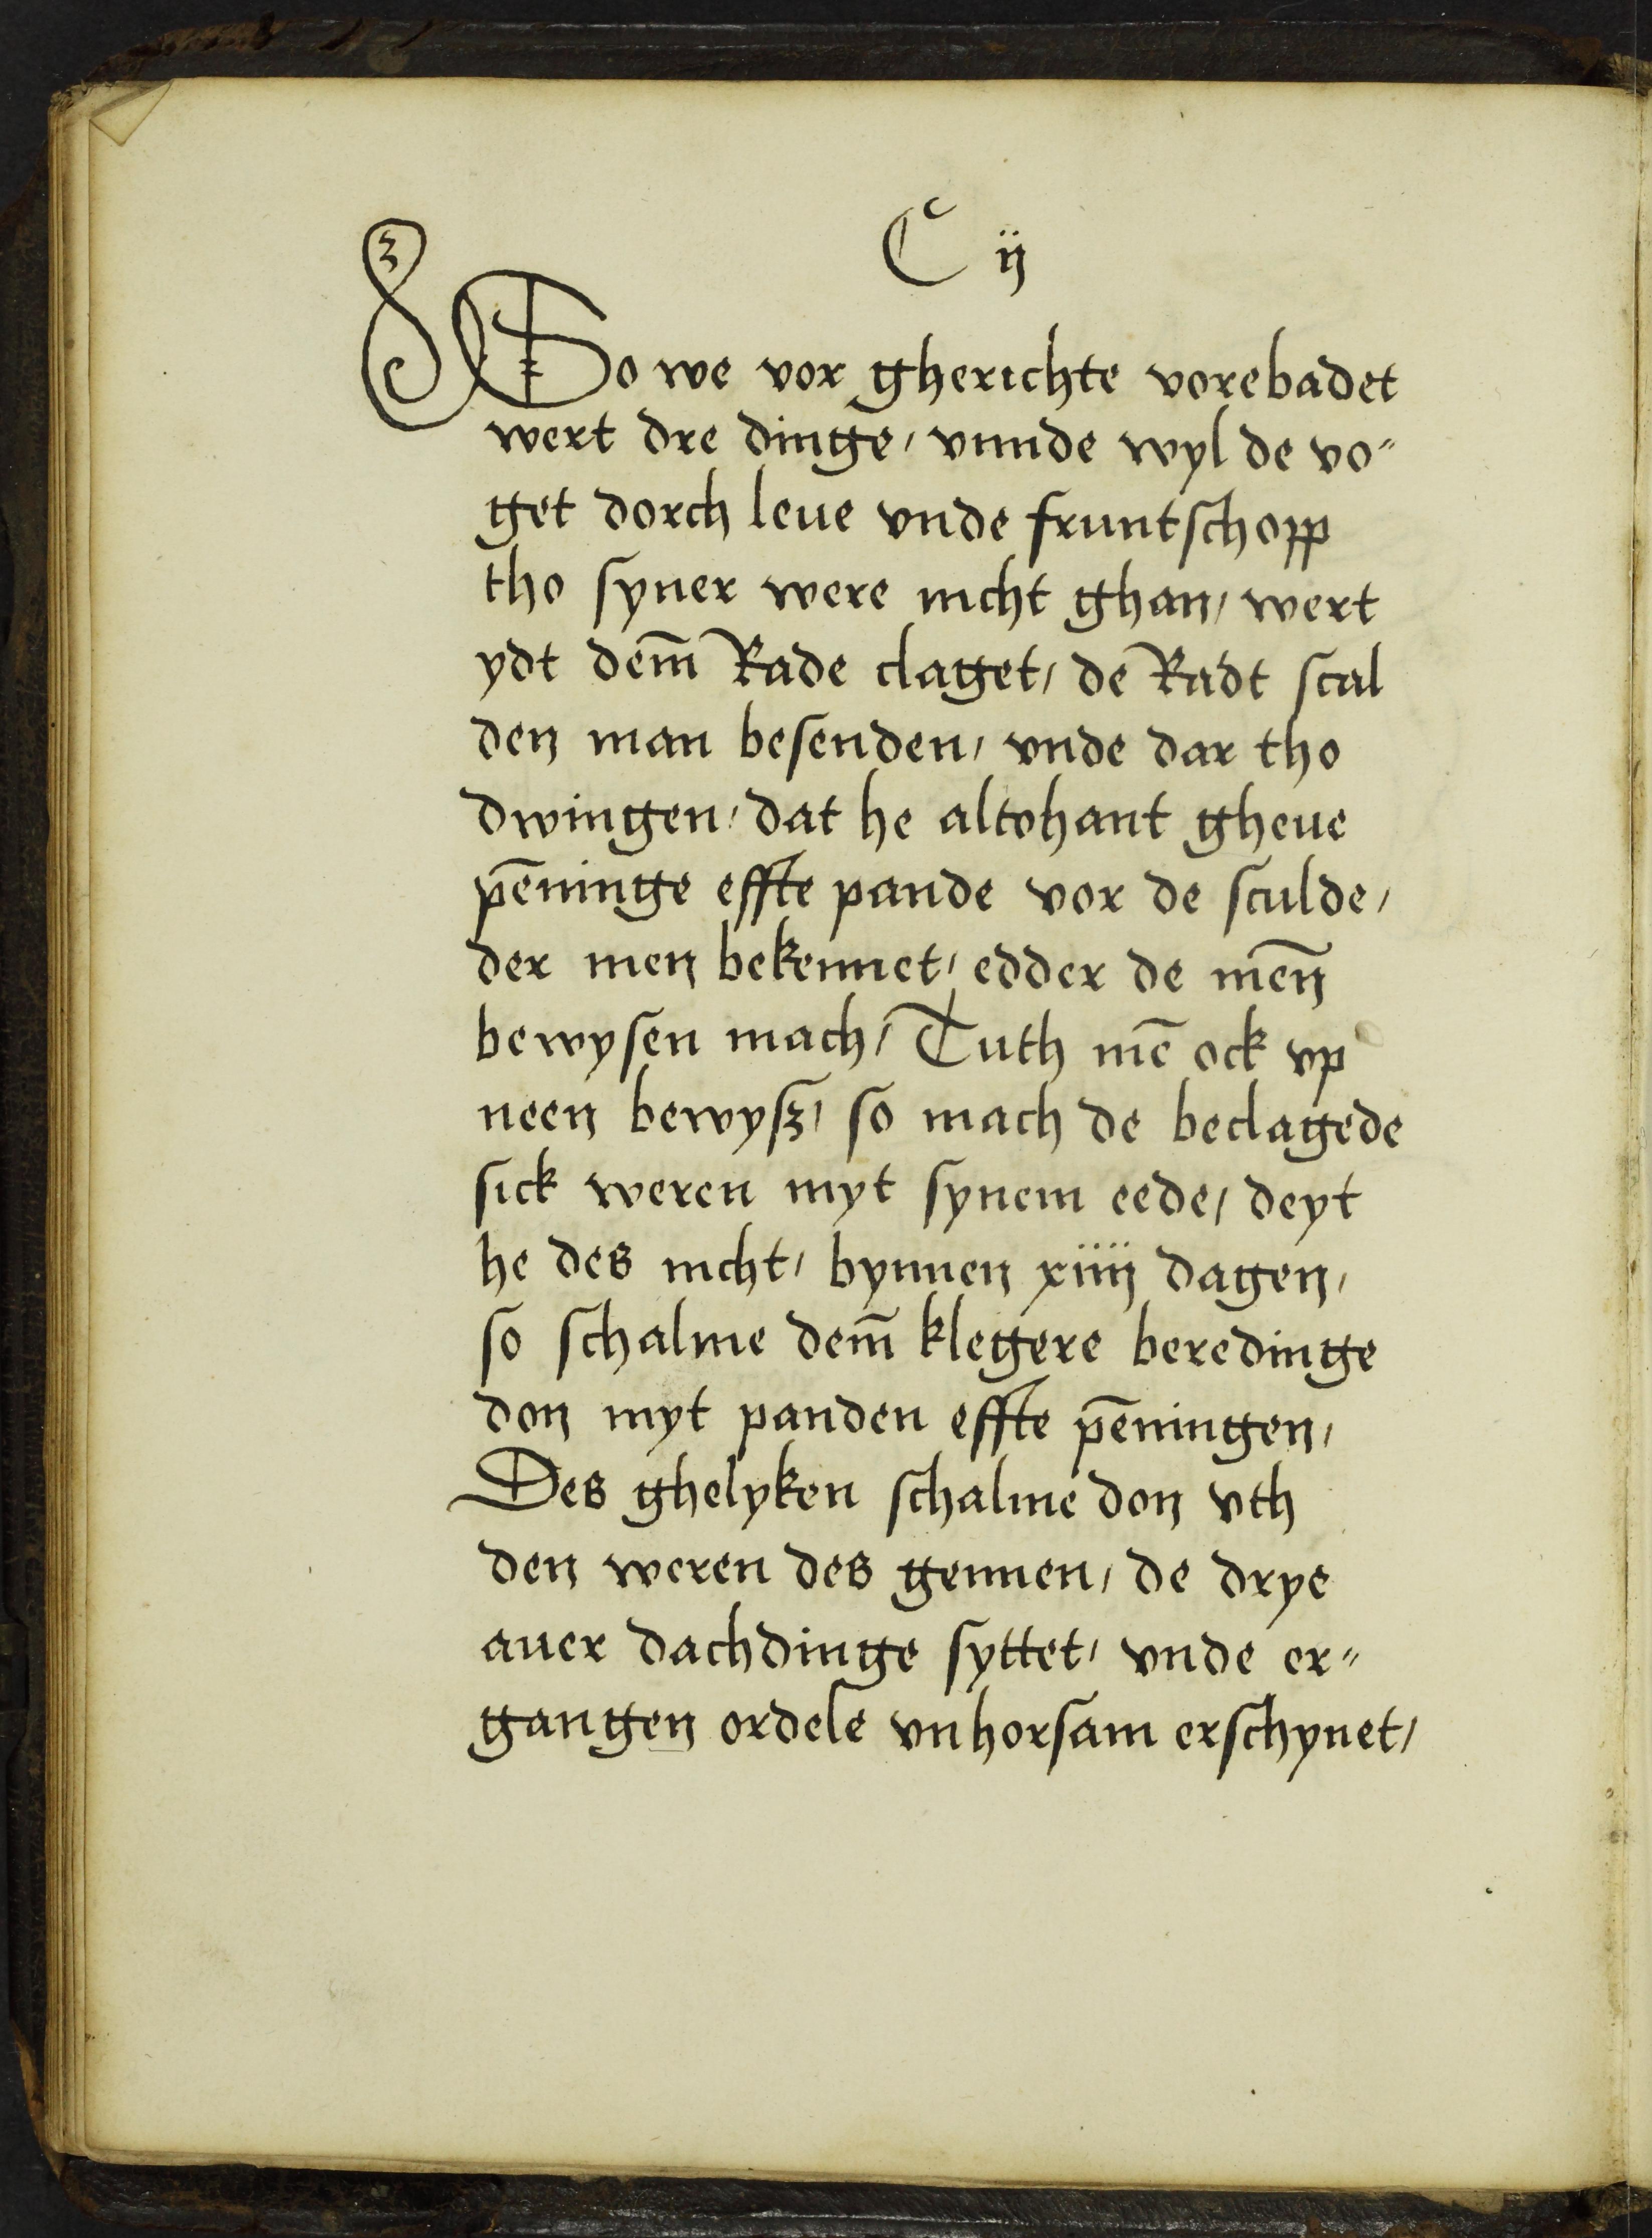 C ij
So we vor gherichte vorebadet
wert dre dinge, vnnde wyl de vo⸗
get dorch leue vnde fruntschopp
tho syner were nicht ghan, wert
ydt dem̄ Rade claget, de Radt scal
den man besenden, vnde dar tho
dwingen, dat he altohant gheue
pēninge effte pande vor de sculde,
der men bekennet, edder de men̄
bewysen mach, Tuth mē ock vp
neen bewysz, so mach de beclagede
sick weren myt synem eede, deyt
he des nicht, bynnen xiiij dagen,
so schalme dem̄ klegere beredinge
don myt panden effte pēningen,
Des ghelyken schalme don vth
den weren des gennen, de drye
auer dachdinge syttet, vnde er⸗
gangen ordele vnhorsam erschynet,